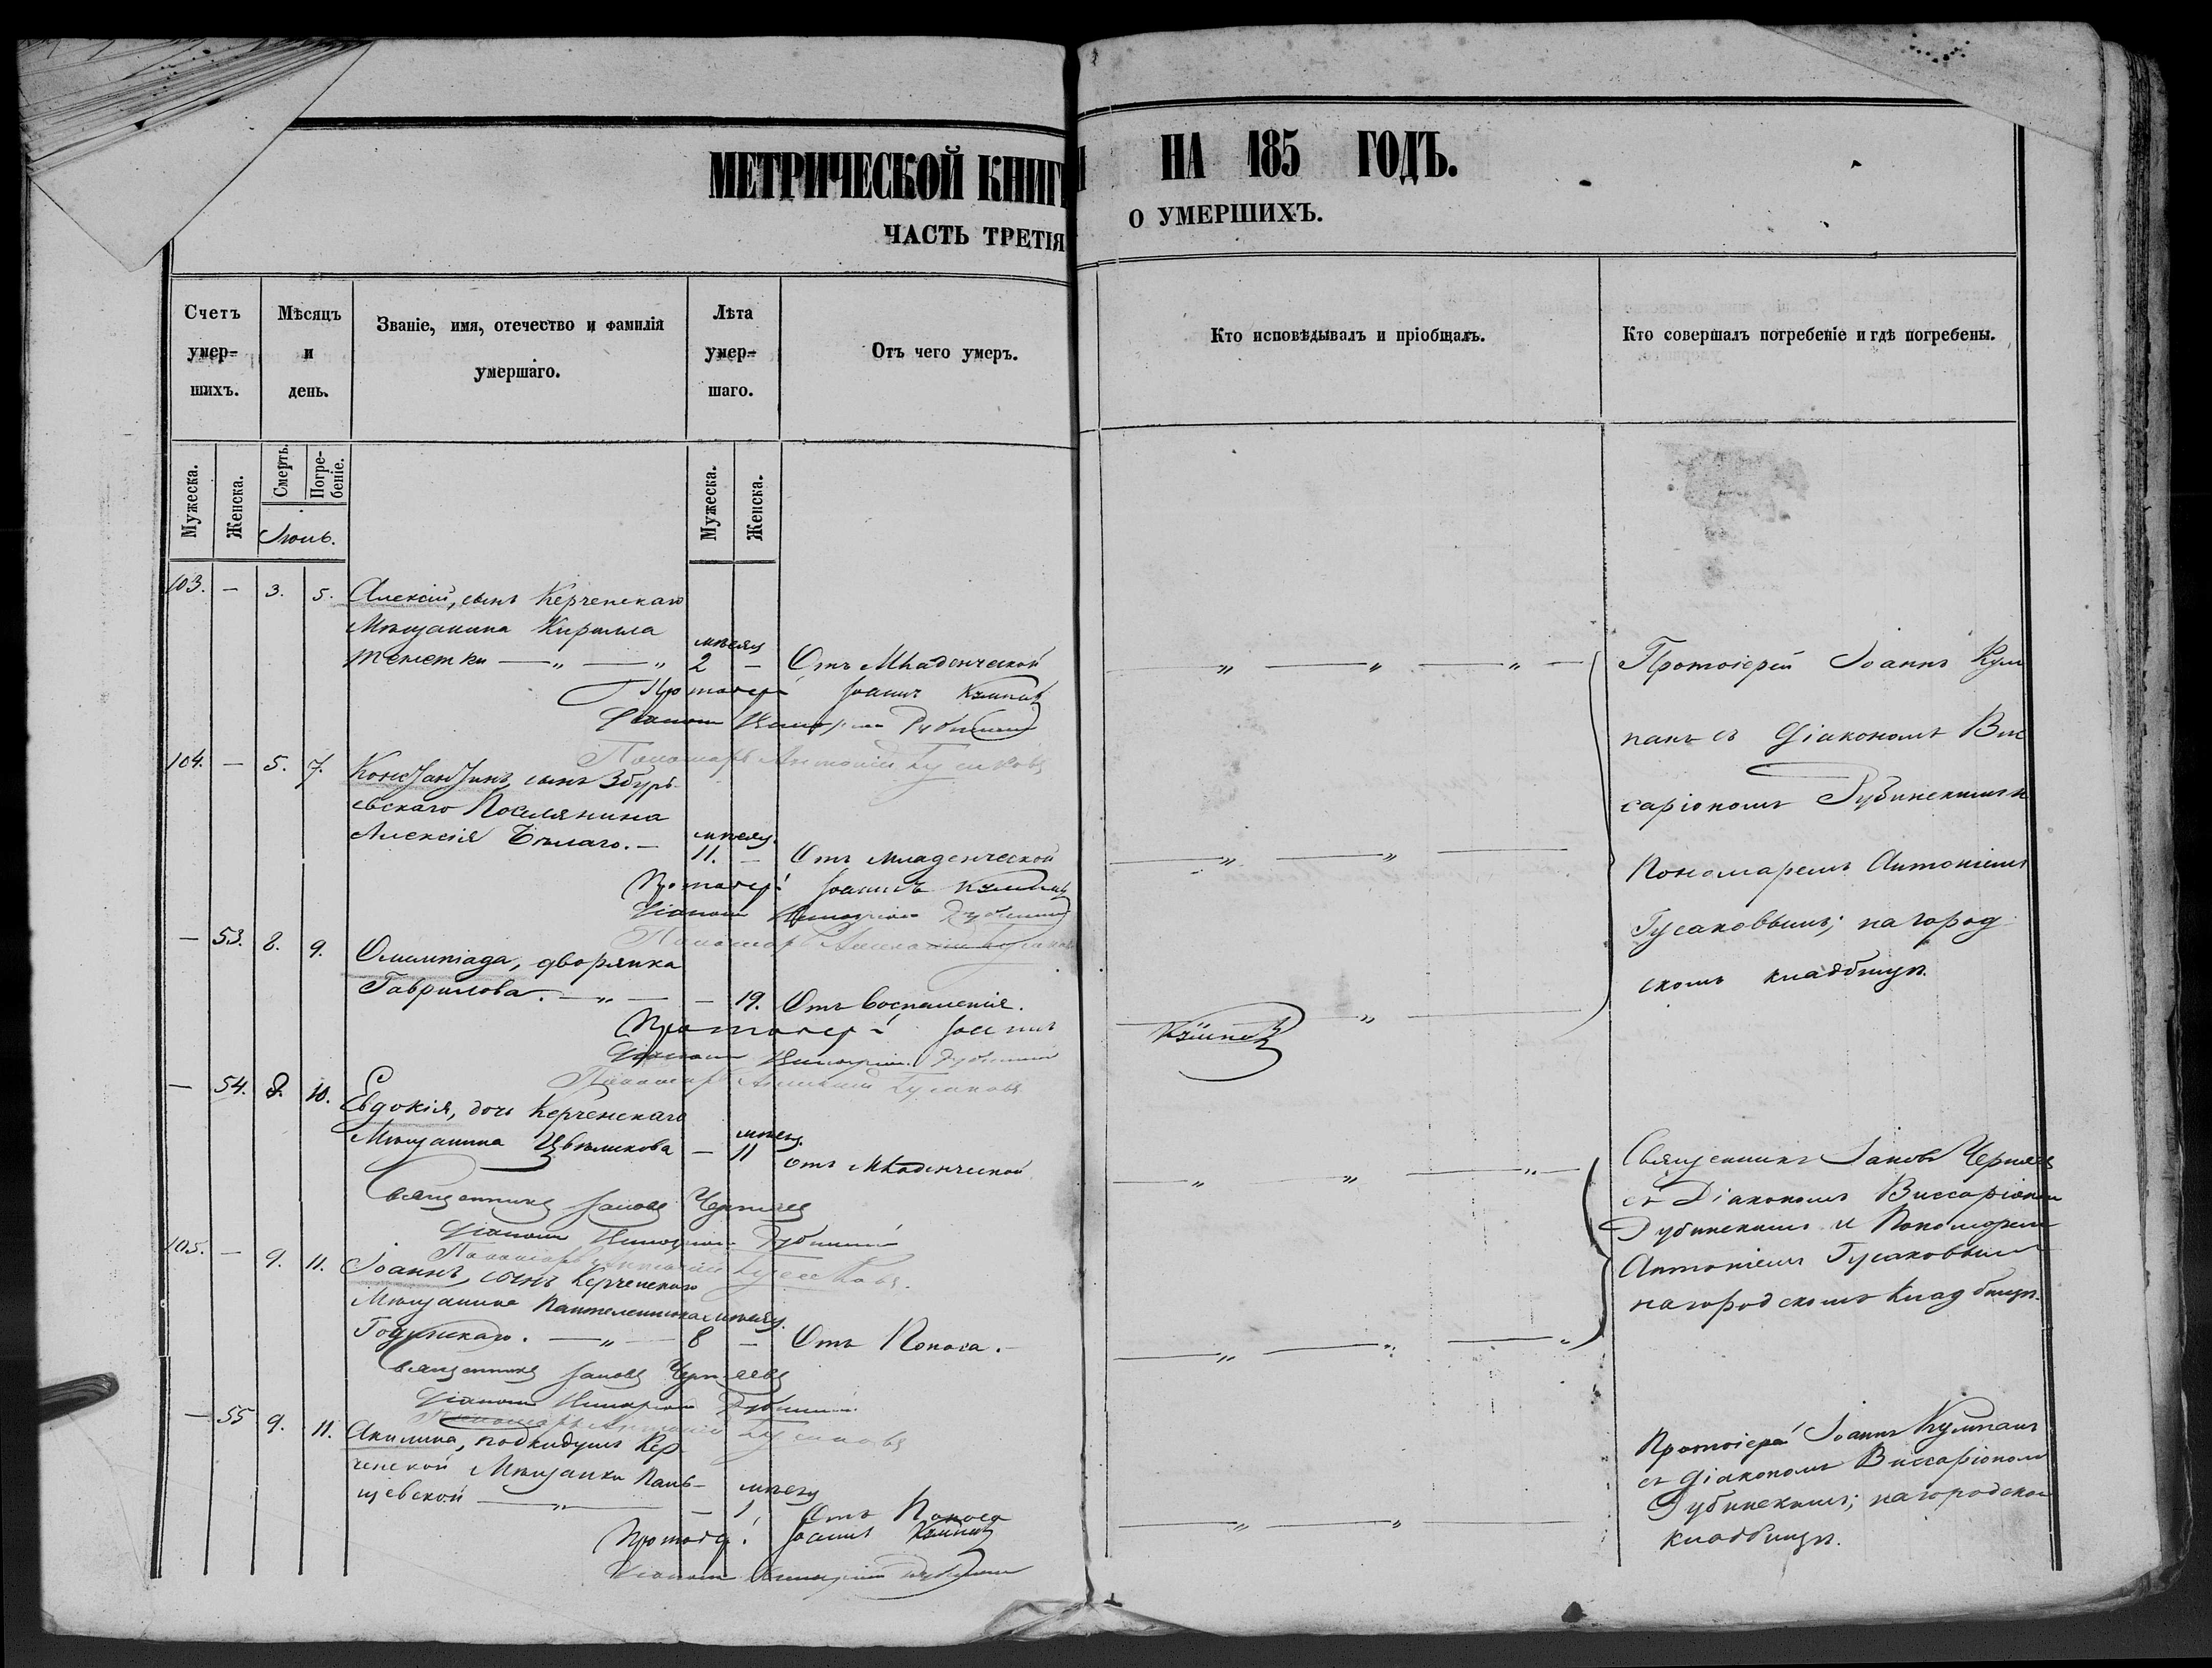 МЕТРИЧЕСКОЙ КНИГИ НА 185 ГОДЪ.
ЧАСТЬ ТРЕТІЯ О УМЕРШИХЪ.
Счетъ умер= шихъ.
Мѣсяцъ и день.
Званіе, имя, отечество и фамилія умершаго.
Лѣта умер= шаго.
Отъ чего умеръ.
Кто исповѣдывалъ и пріобщалъ.
Кто совершалъ погребеніе и гдѣ погребены.
Мужеска.
Женска.
Смерть.
Погре- беніе.
Мужеска.
Женска.
103. — 3. 5. Алексій, сынъ Керченскаго
Мѣщанина Кирилла
мѣсяц
2 — Отъ Младенческой
Протоіерей Іоаннъ Кумпанъ
Діаконъ Виссаріонъ Дубинскій
Пономарь Антоній Гусаковъ
104. — 5. 7. Константинъ, сынъ Збурь-
евскаго Поселянина
Алексія Бѣлаго. — мѣсяц.
11. — Отъ младенческой
Протоіерей Іоаннъ Кумпанъ
Діаконъ Виссаріонъ Дубинскій
Пономарь Антоній Гусаковъ
Протоіерей Іоаннъ Кум
панъ съ Діакономъ Вис
саріономъ Дубинскимъ и
Пономаремъ Антоніемъ
Гусаковымъ; на город
скомъ кладбищѣ.
— 53. 8. 9. Олимпіада, дворянка
Гаврилова. — „ — — 19. Отъ воспаленія.
Протоіерей Іоаннъ Кумпанъ
Діаконъ Виссаріонъ Дубинскій
Пономарь Антоній Гусаковъ
— 54. 8. 10. Евдокія, дочь Керченскаго
Мѣщанина Цвѣликова — мѣсяц.
11 отъ Младенческой
Священникъ Іаковъ Черняевъ
Діаконъ Виссаріонъ Дубинскій
Пономарь Антоній Гусаковъ.
105. — 9. 11. Іоаннъ, сынъ Керченскаго
Мѣщанина Пантелеимона мѣсяц.
8 — Отъ Поноса.
Священникъ Іаковъ Черняевъ
Діаконъ Виссаріонъ Дубинскій
Пономарь Антоній Гусаковъ
Священникъ Іаковъ Черняев
съ Діакономъ Виссаріоном
Дубинскимъ и Пономарем
Антоніемъ Гусаковымъ
на городскомъ кладбищѣ.
— 55 9. 11. Акилина, подкидышъ Кер-
ченской Мѣщанки
мѣсяц
— 1 Отъ Поноса
Протоіерей Іоаннъ Кумпанъ
Діаконъ Виссаріонъ Дубинскій
Протоіерей Іоаннъ Кумпанъ
съ Діакономъ Виссаріоном
Дубинскимъ; на городском
кладбищѣ.